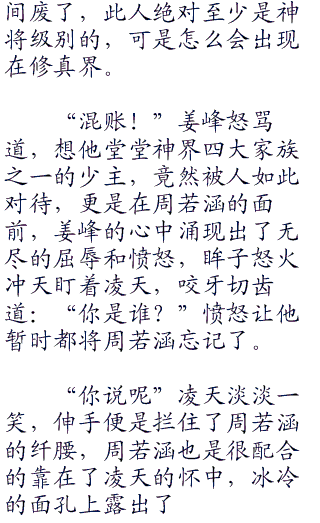 间废了，此人绝对至少是神
将级别的，可是怎么会出现
在修真界。
“混账！”姜峰怒骂
道，想他堂堂神界四大家族
之一的少主，竟然被人如此
对待，更是在周若涵的面
前，姜峰的心中涌现出了无
尽的屈辱和愤怒，眸子怒火
冲天盯着凌天，咬牙切齿
道：“你是谁？”愤怒让他
暂时都将周若涵忘记了。
“你说呢”凌天淡淡一
笑，伸手便是拦住了周若涵
的纤腰，周若涵也是很配合
的靠在了凌天的怀中，冰冷
的面孔上露出了